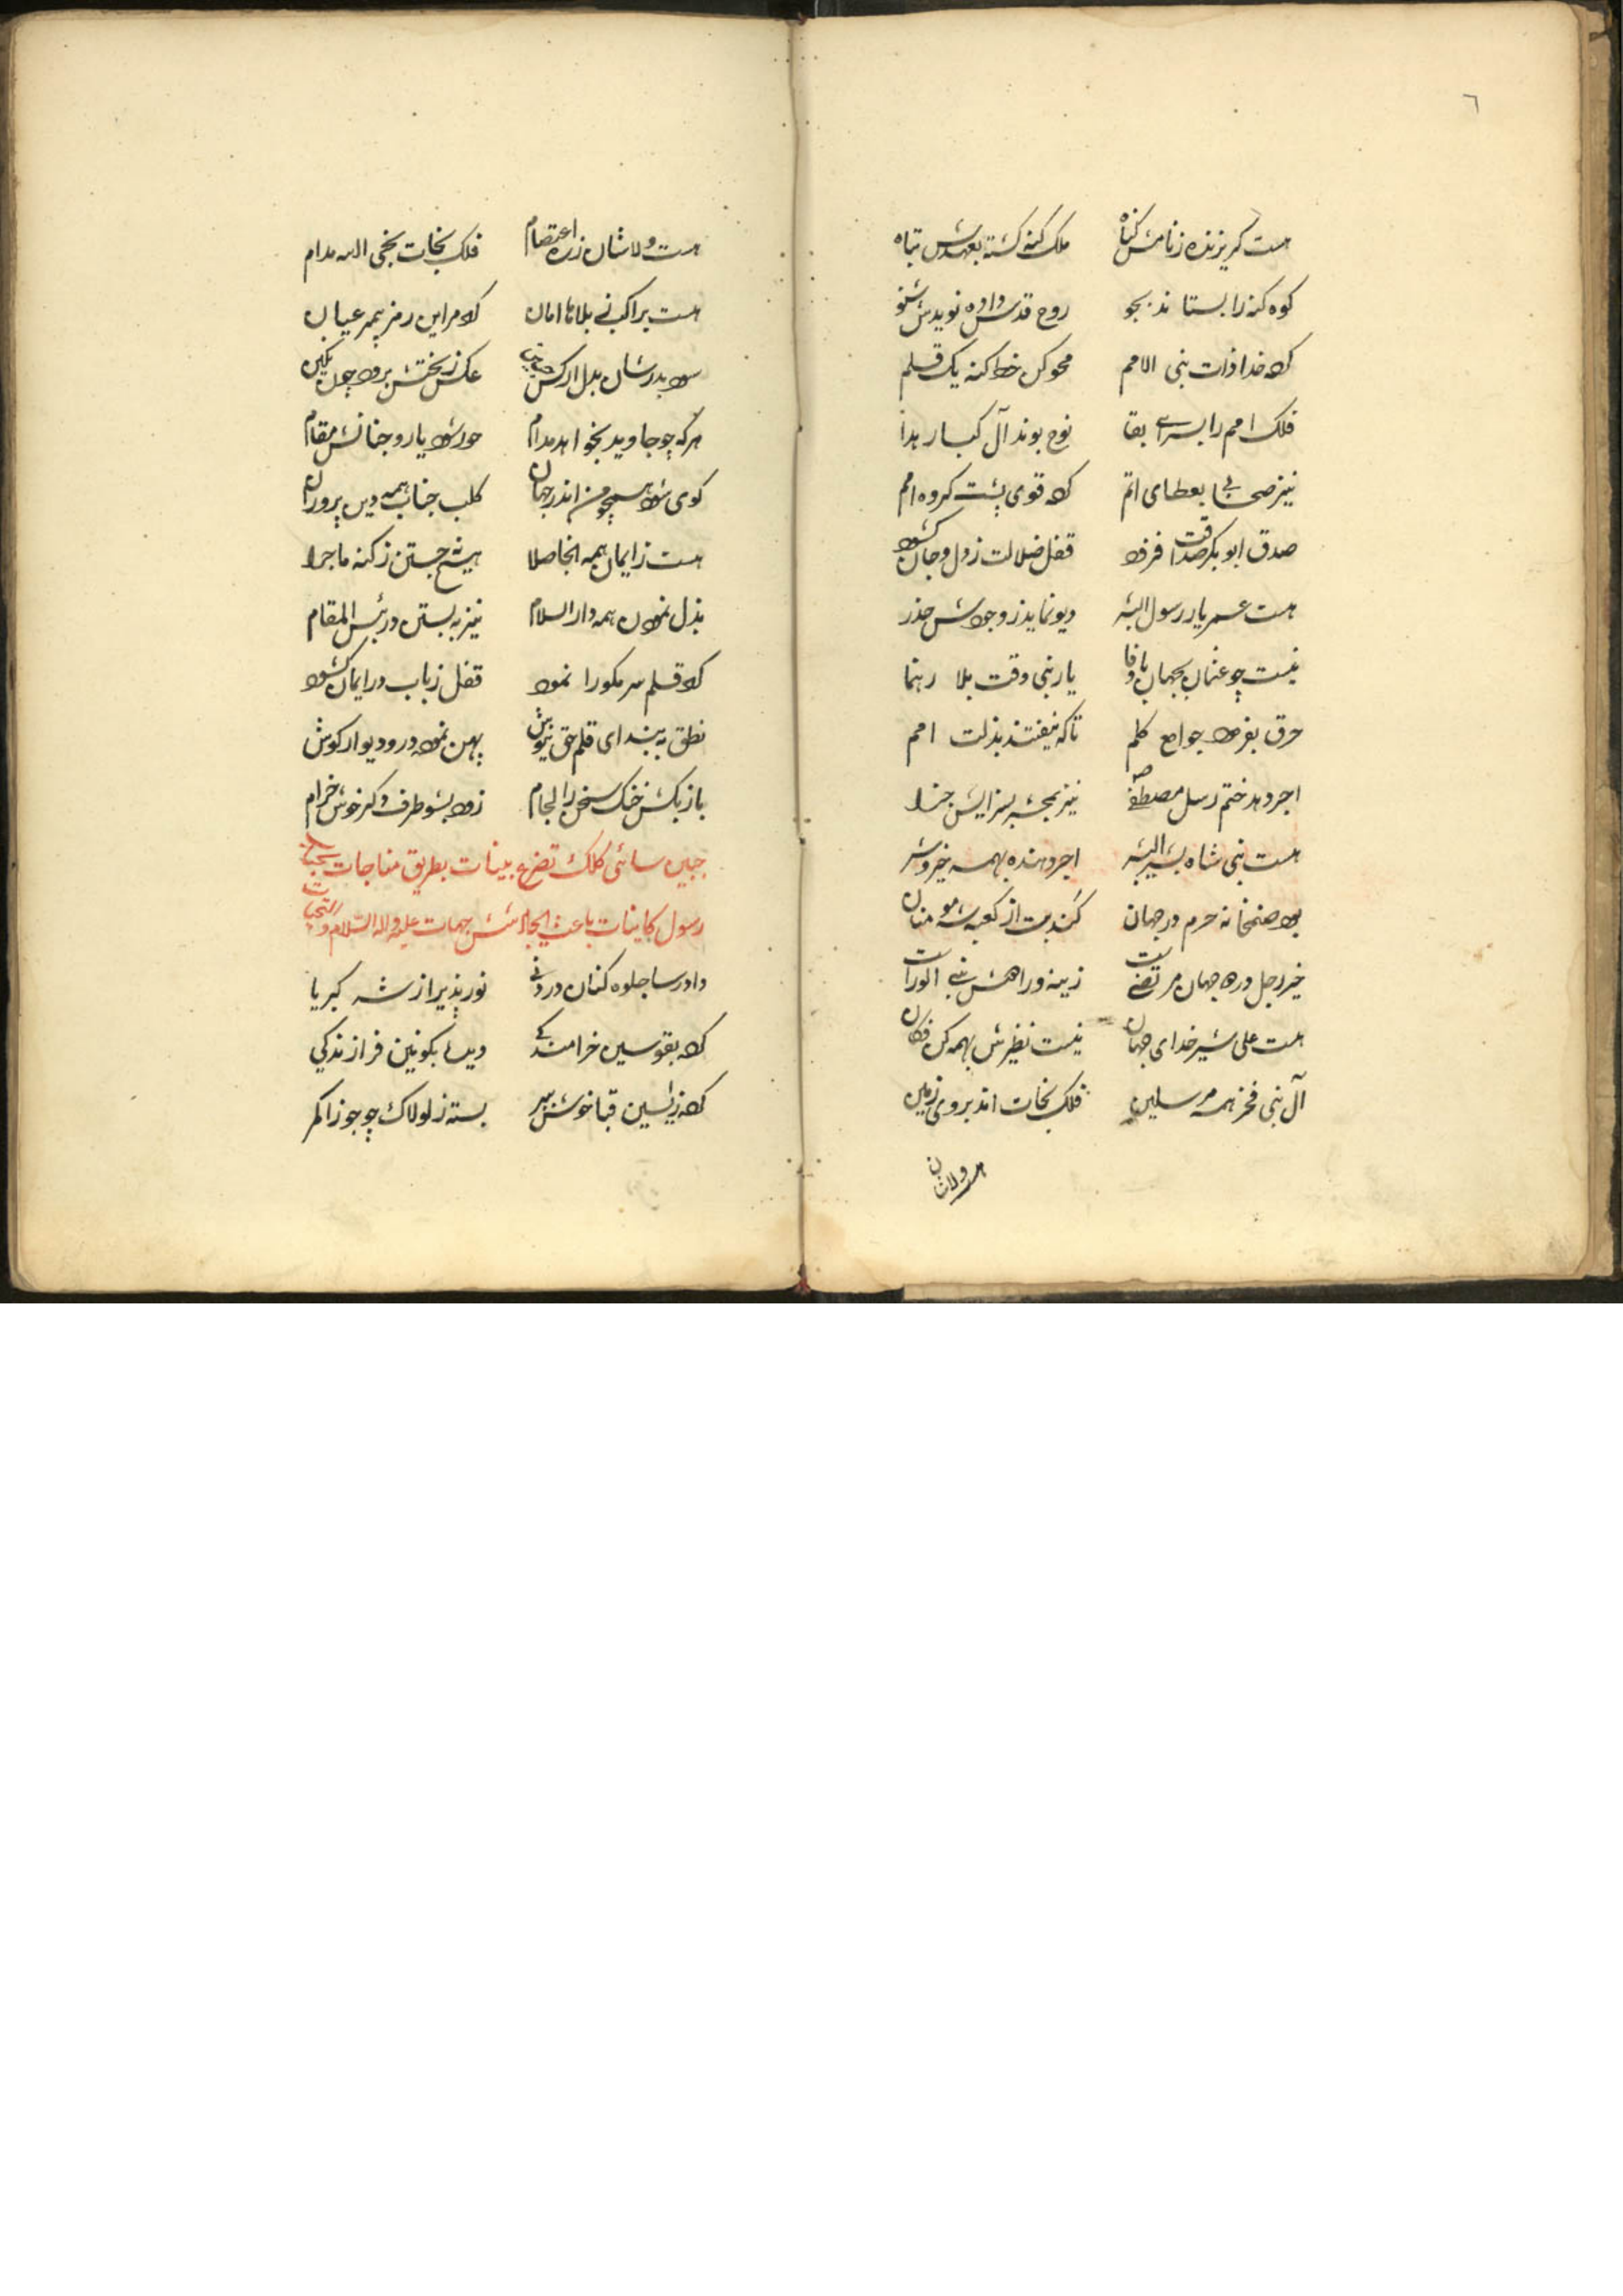 ٦
هست کریزنده زنامش کناه ملک کنه کشته بعهدش تباه
کوه کنه را بستاند بجو روح قدس داده نویدش شنو
کرد خدا ذات نبی الامم محو کن خط کنه یک قلم
فلک امم را بسرای بقا نوح بوند آل کبار هدا
نیز صحابی بعطای اتم کرد قوی پشت کروه امم
صدق ابو بکر صداقت فزود قفل ضلالت ز دل و جان کشود
هست عمر یار رسول البشر دیو نماید ز وجودش حذر
نیست چو عثمان بجهان با وفا یار نبی وقت بلا رهنما
حرق بفرمود جوامع کلم تا که نیفتند بذلت امم
اجر دهد ختم رسل مصطفی نیز بمحشر بسزایش جزا
هست نبی شاه بشیر البشر اجر دهنده بهمه خیر و شر
بود صنمخانه حرم در جهان کند بت از کعبه شه مومنان
خیر رجل در دو جهان مرتضی ست زینه و راهش نبی الورا ست
هست علی شیر خدای جهان نیست نظیرش بهمه کن فکان
آل نبی فخر همه مرسلین فلک نجات اند بروی زمین
هست ولاشان
هست ولاشان زره اعتصام فلک نجات بخی الله مدام
هست براکب نی بلاها امان کرد مر این رمز پیمبر عیان
هر که چو جاوید بخواهد مدام حور شود یار و جنانش مقام
کوی شود همچو من اندر جهان کلب جناب همه دین پروران
هست ز ایمان همه انجا صلا هیشم جستن ز کنه ماجرا
بذل نمودن همه دار السلام نیز به بستن در بئس المقام
کرد قلم سر مکو را نمود قفل ز باب در ایمان کشود
نطق به بند ای قلم حق نیوش پهن نموده در و دیوار کوش
باز بکش خنک سخن را لجام زود بشو طرف دکر خوش خرام
جبین سائی کلک تضرع بینات بطریق مناجات بجناب
رسول کاینات باعث ایجاد شش جهات علیه و اله السلام و التحیات
دادرسا جلوه کنان در دنی نور پذیر از شه کبریا
کرده بقوسین خرامندکی دیده بکونین فرازندکی
کرده ز یسین قبا خوش ببر بسته ز لولاک چو جوزا کمر